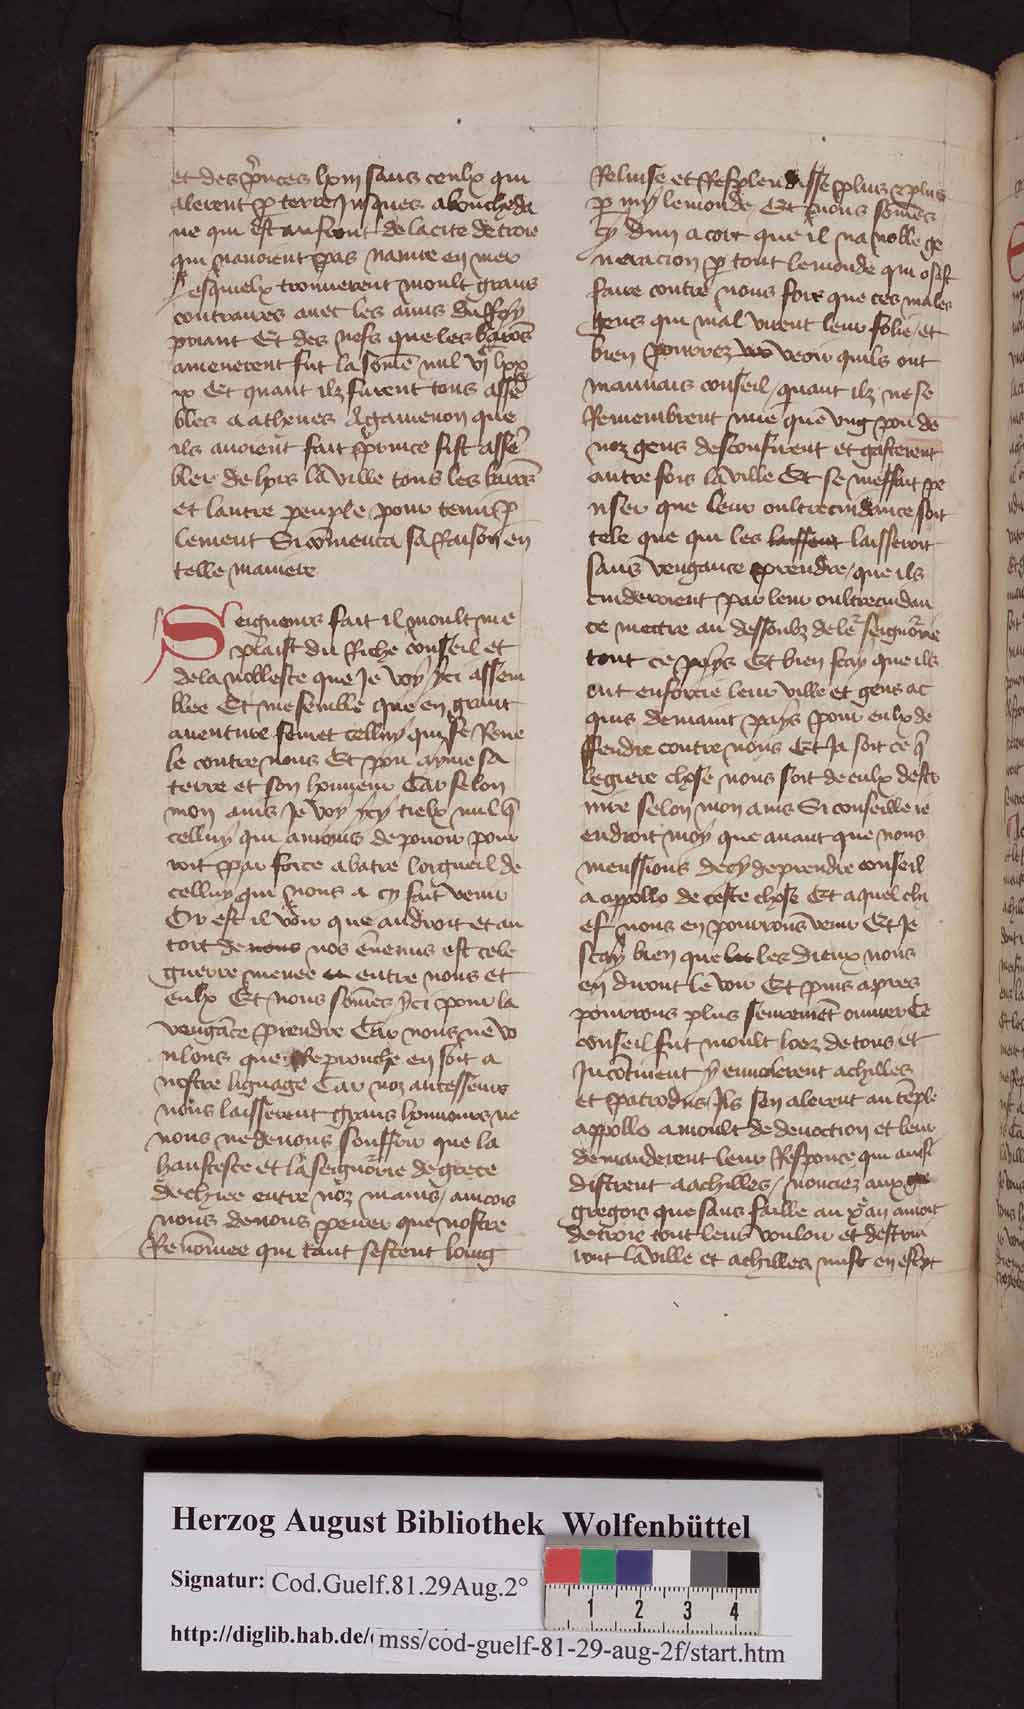 et des p̃nces lxiij sans ceulx qui
alerent p terre Jusques abouch de da
ne qui est au front de la cite de troie
qui nauoient pas nauire en mer
lesquielx trouuerent moult grans
contraires auec les amis du Roy
priant Et des nefs que les barõs
amenerent fut la sõme mil vjᶜ iiijˣˣ
x Et quant ilz furent tous assẽ
bles a athenes Agamenon que
ils auoient fait prince fist assẽ
bler de hors la ville tous les barõs
et lautre peuple pour tenir p
lement Si cõmenca sa raison en
telle maniere
Seigneurs fait il moult me
plaist du Riche conseil et
de la noblesce que Je voy yci assem
blee Et me semble que en grant
auenture semet celluy qui se Reue
le contre nous Et pou ayme sa
terre et son honneur Car selon
mon auis Je voy ycy tielx mil q̃
celluy qui a moins de pouoir pour
roit par force abatre lorgueil de
celluy qui nous a cy fait venir
Or est il voir que au droit et au
tort de nous nos ẽnemis est cele
guerre menee en entre nous et
eulx Et nous sõmes yci pour la
vengãce prendre Car nous ne vo
ulons que Reprouche en soit a
nostre lignage Car noz ancesseurs
nous laisserent grans honneurs ne
nous ne deuons souffrir que la
haultesce et la seignorie de grece
dechiee entre noz mains / aincois
nous deuons pener que nostre
Renõmee qui tant sestent loing
Reluise et Resplendisse plus & plus
p my le monde Et nous sõmes
cy dun acort que il na noble ge
neracion p tout le monde qui osast
faire contre nous fors que ces males
gens qui mal virent leur folie / et
bien pourrez vos veoir quils ont
mauuais conseil / quant ilz ne se
Remembrent mie que vng pou de
noz gens desconfirent et gasterent
autre fois la ville Et se meffait pe
nser que leur oultrecuidance soit
tele que qui les laissent laisseroit
sans vengance prendre / que ils
cuideroient par leur oultrecuidan
ce mectre au dessoubz de leʳ seignorie
tout ce pays Et bien scay que ils
ont enforcie leur ville et gens ac
quis de maint pays pour eulx de
ffendre contre nous Et Ja soit ce q̃
legiere chose nous soit de eulx destr
uire selon mon auis Si conseille ie
endroit moy que auant que nous
meussions de cy de prendre conseil
a appollo de ceste chose Et a quel chi
ef nous en pourrons venir Et Je
scay bien que les les dieux nous
en diront le voir Et puis apres
pourrons plus seuremẽt ouurer Ce
conseil fut moult loez de tous et
Incõtinent y enuoierent achilles
et patrodus / Ils sen alerent au tẽple
appollo a moult de deuoction et leur
demanderent leur Responce qui ainsi
distrent a achilles / nonciez aux gre
gregois que sans faille au xᵉ an auront
de troie tout leur vouloir et destrui
ront la ville et achilles mist en escript
Herzog August Bibliothek Wolfenbüttel
Signatur: Cod.Guelf.81.29Aug.2°
1 2 3 4
http://diglib.hab.de/ mss/cod-guelf-81-29-aug-2f/start.htm